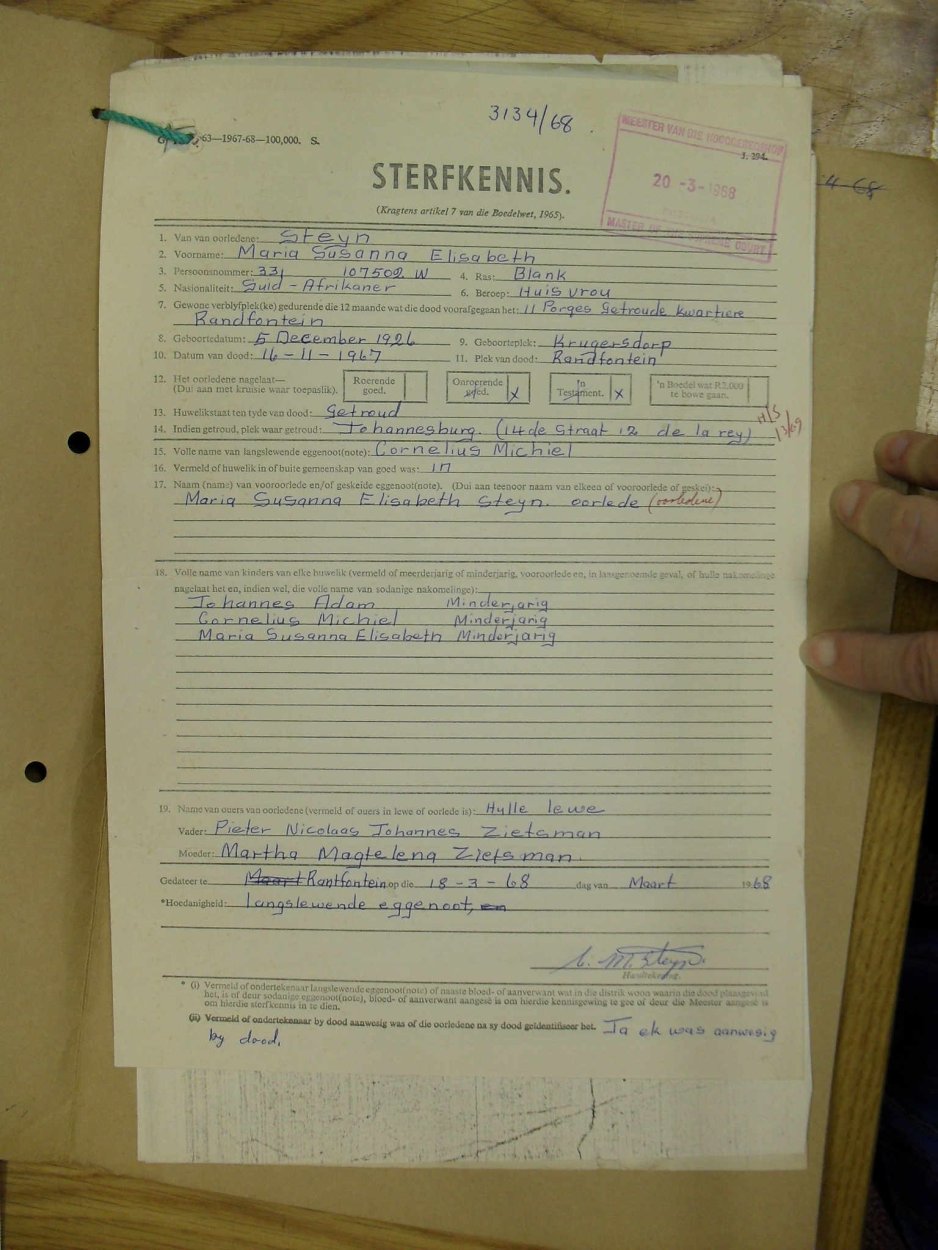 3134/68
63—1967-68—100,000. S.
J. 294.
MEESTER VAN DIE HOOGGEREGSHOF
20 -3- 1968
MASTER OF THE SUPREME COURT
4-68
STERFKENNIS.
(Kragtens artikel 7 van die Boedelwet, 1965).
1. Van van oorledene: Steyn
2. Voorname: Maria Susanna Elisabeth
3. Persoonsnommer: 331 107502 W 4. Ras: Blank
5. Nasionaliteit: Suid-Afrikaner 6. Beroep: Huisvrou
7. Gewone verblyfplek(ke) gedurende die 12 maande wat die dood voorafgegaan het: 11 Porges Getroude Kwartiere
Randfontein
8. Geboortedatum: 5 December 1926 9. Geboorteplek: Krugersdorp
10. Datum van dood: 16-11-1967 11. Plek van dood: Randfontein
12. Het oorledene nagelaat—
(Dui aan met kruisie waar toepaslik).
Roerende goed.
Onroerende goed. x
'n Testament. x
'n Boedel wat R2,000 te bowe gaan.
13. Huwelikstaat ten tyde van dood: Getroud
14. Indien getroud, plek waar getroud: Johannesburg. (14de Straat 12 de la rey)
15. Volle name van langslewende eggenoot(note): Cornelius Michiel
16. Vermeld of huwelik in of buite gemeenskap van goed was: in
17. Naam (name) van vooroorlede en/of geskeide eggenoot(note). (Dui aan teenoor naam van elkeen of vooroorlede of geskei):
Maria Susanna Elisabeth Steyn. oorlede (oorledene)
18. Volle name van kinders van elke huwelik (vermeld of meerderjarig of minderjarig, vooroorlede en, in lasgenoemde geval, of hulle nakomelinge
nagelaat het en, indien wel, die volle name van sodanige nakomelinge):
Johannes Adam Minderjarig
Cornelius Michiel Minderjarig
Maria Susanna Elisabeth Minderjarig
19. Name van ouers van oorledene (vermeld of ouers in lewe of oorlede is): Hylle lewe
Vader: Pieter Nicolaas Johannes Zietsman
Moeder: Martha Magtelena Zietsman.
Gedateer te Maart Rantfontein op die 18-3-68 dag van Maart 1968
*Hoedanigheid: langslewende eggenoot, en
C. M. Steyn.
Handtekening.
* (i) Vermeld of ondertekenaar langslewende eggenoot(note) of naaste bloed- of aanverwant wat in die distrik woon waarin die dood plaasgevind
het, is of deur sodanige eggenoot(note), bloed- of aanverwant aangesê is om hierdie kennisgewing te gee of deur die Meester aangesê is
om hierdie sterfkennis in te dien.
(ii) Vermeld of ondertekenaar by dood aanwesig was of die oorledene na sy dood geïdentifiseer het. Ja ek was aanwesig
by dood.